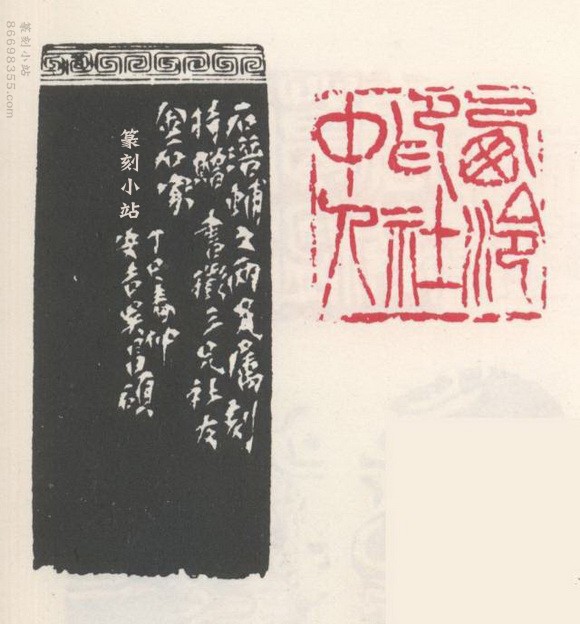 西泠
印社
中人
石潛輔之兩兄屬刻
持贈書徵三兄社友
金石家
丁巳春仲
安吉吳昌碩
篆刻小站
篆刻小站
86698355.com